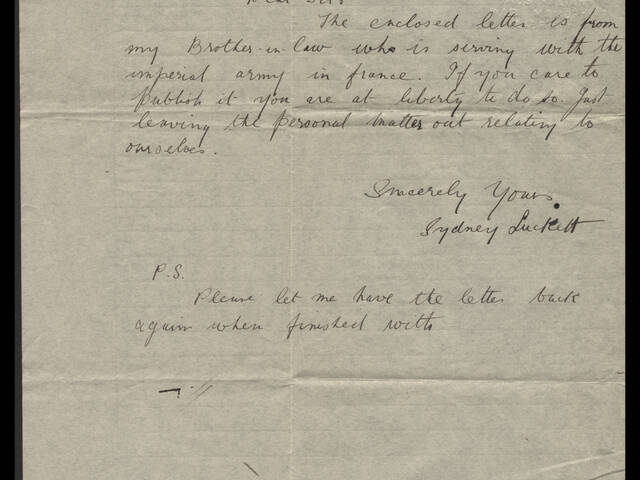 Dear Sirs
The enclosed letter is from
my Brother-in-law who is serving with the
imperial army in france. If you care to
publish it you are at liberty to do so. Just
leaving the personal matter out relating to
ourselves.
Sincerely Yours.
Sydney Luckett
P.S.
Please let me have the letter back
again when finished with